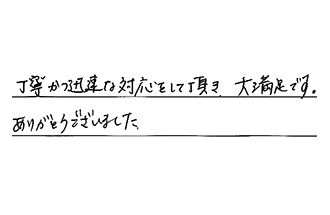 丁寧かつ迅速な対応をして頂き、大満足です。
ありがとうございました